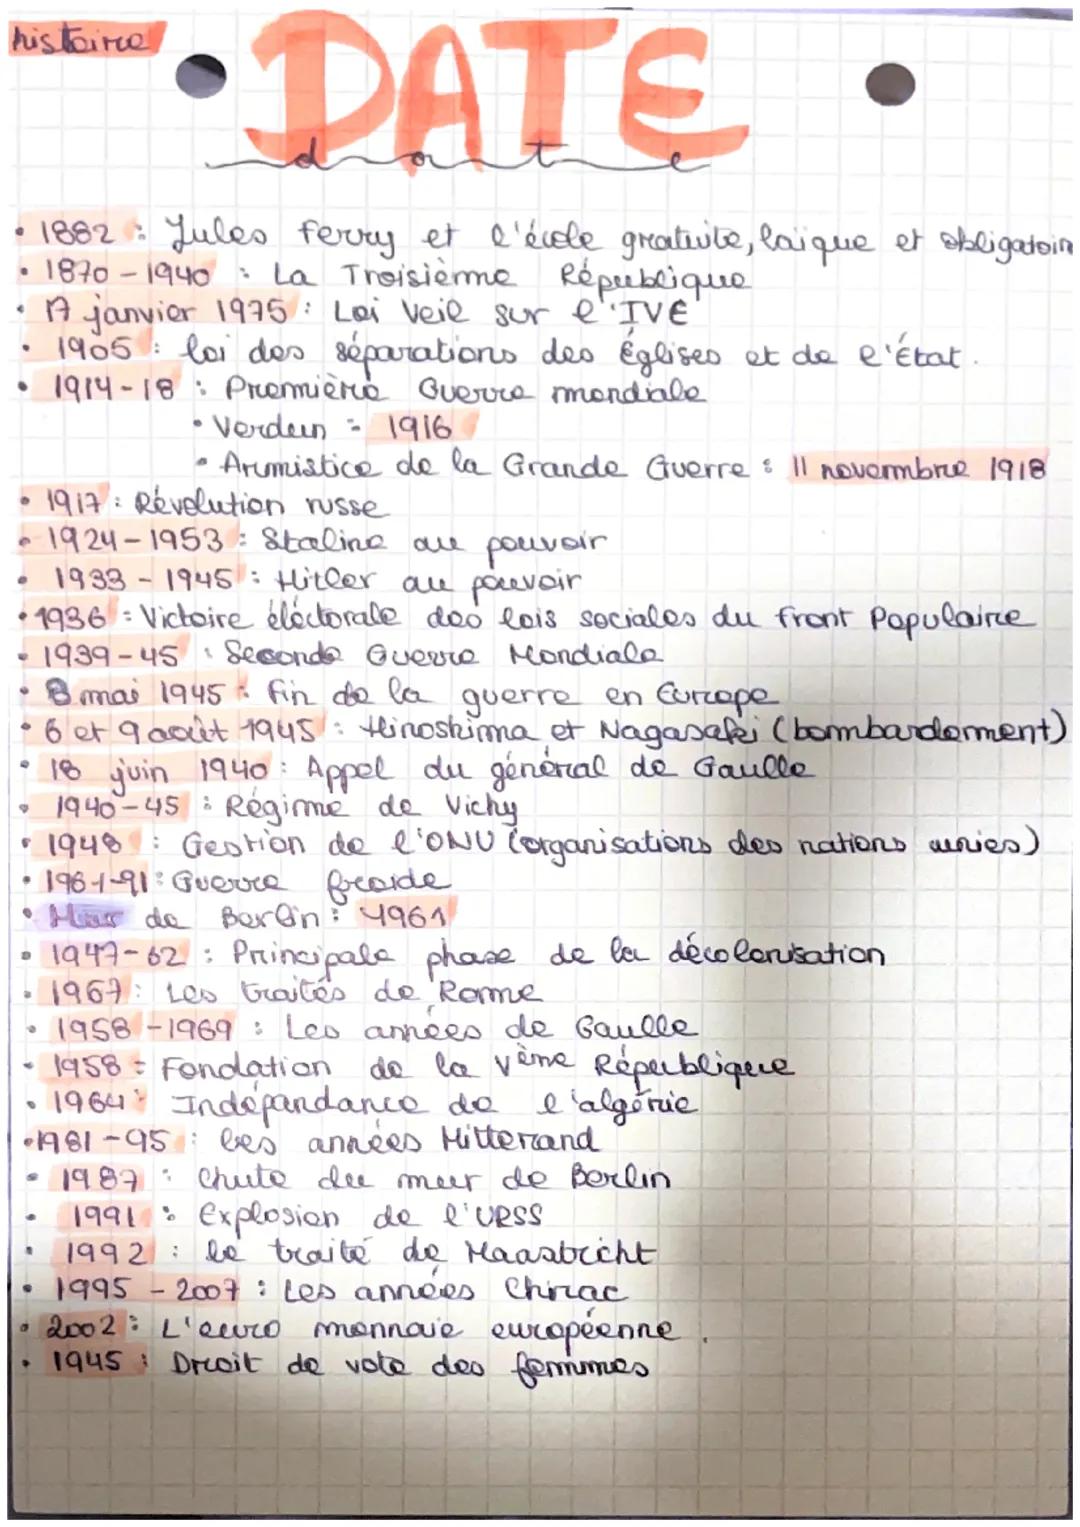 histoire
DATE
date
• 1882 : Jules ferry et l'école gratuite, laïque et obligatoire
• 1870 - 1940 : La Troisième République
• 17 janvier 1975 : Loi Veil sur l'IVE
• 1905 : loi des séparations des Églises et de l'État.
• 1914-18 : Première Guerre mondiale
• Verdun : 1916
• Armistice de la Grande Guerre : 11 novembre 1918
• 1917 : Révolution russe
• 1924-1953 : Staline au pouvoir
• 1933 - 1945 : Hitler au pouvoir
• 1936 : Victoire éléctorale des lois sociales du front Populaire
• 1939-45 : Seconde Guerre Mondiale
• 8 mai 1945 : fin de la guerre en Europe
• 6 et 9 août 1945 : Hiroshima et Nagasaki (bombardement)
• 18 juin 1940 : Appel du général de Gaulle
• 1940-45 : Régime de Vichy
• 1948 : Gestion de l'ONU (organisations des nations unies)
• 1961-91 : Guerre froide
• Mur de Berlin : 1961
• 1947-62 : Principale phase de la décolonisation
• 1967 : Les traités de Rome
• 1958 -1969 : Les années de Gaulle
• 1958 : Fondation de la Vème République
• 1964 : Indépandance de l'algérie
• 1981-95 : les années Mitterand
• 1987 : Chute du mur de Berlin
• 1991 : Explosion de l'URSS
• 1992 : le traité de Maastricht
• 1995 - 2007 : Les années Chirac
• 2002 : L'euro monnaie européenne.
• 1945 : Droit de vote des femmes